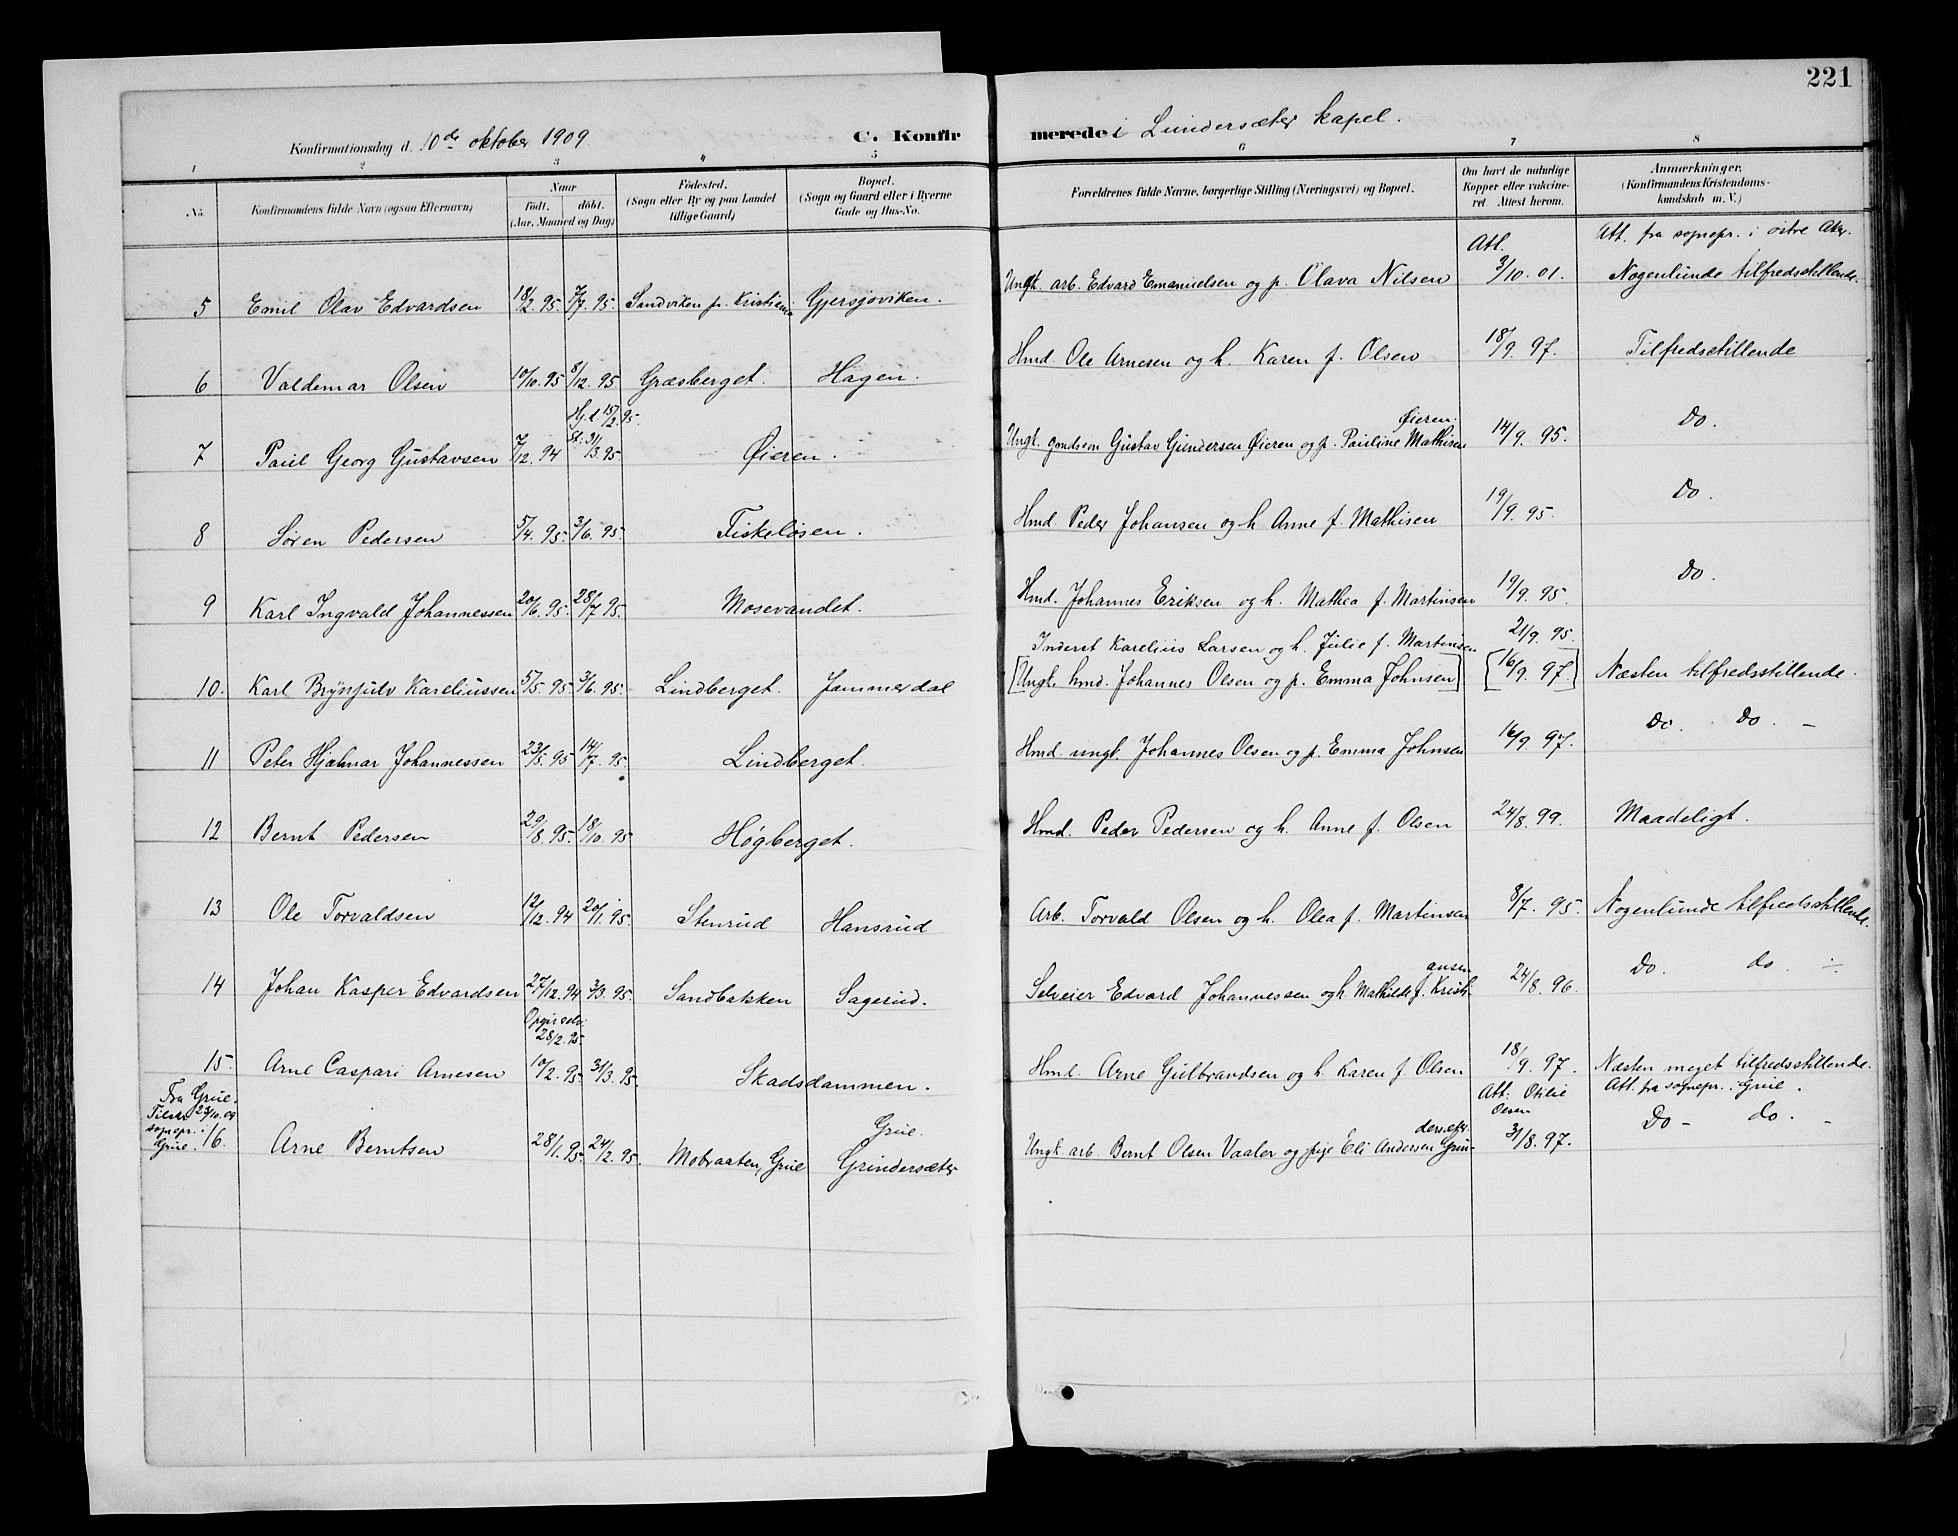 221
Konfirmationsdag d. 10de oktober 1909. C. Konfirmerede i Lundersæter kapel.
1 2 3 4 5 6 7 8
No. Konfirmandens fulde Navn (ogsaa Efternavn) Naar født. døbt. (Aar, Maaned og Dag) Fødested. (Sogn eller By og paa Landet tillige Gaard) Bopæl. (Sogn og Gaard eller i Byerne Gade og Hus-No. Forældrenes fulde Navne, borgerlige Stilling (Næringsvei) og Bopæl. Om havt de naturlige Kopper eller vakcineret. Attest herom. Anmærkninger. (Konfirmandens Kristendomskundskab m. V.)
Att. Att. fra sognepr. i østre Aker.
5 Emil Olav Edvardsen 18/2. 95. 7/7. 95. Sandviken pr. Kristiania Gjersjøviken. Ungk. arb. Edvard Emanuelsen og p. Olava Nilsen 3/10. 01. Nogenlunde tilfredsstillende.
6 Valdemar Olsen 10/10. 95 8/12. 95 Græsberget. Hagen. Hmd. Ole Arnesen og h. Karen f. Olsen 18/9. 97. Tilfredsstillende
Hj.d. 15/2. 95. Øieren.
7 Paul Georg Gustavsen 7/12. 94 St. 31/3. 95. Øieren. Ungk. gmdsøn Gustav Gundersen Øieren og p. Pauline Mathisen 14/9. 95. Do.
8 Søren Pedersen 5/4. 95. 3/6. 95. Fiskeløsen. Hmd. Peder Johansen og h. Anne f. Mathisen 19/9. 95. Do.
9 Karl Ingvald Johannessen 20/6. 95. 28/7. 95. Mosevandet. Hmd. Johannes Eriksen og h. Mathea f. Martinsen 19/9. 95. Do.
Inderst Karelius Larsen og h. Julie f. Martinsen 21/9. 95.
10. Karl Brynjulv Kareliussen 5/5. 95. 3/6. 95. Lindberget. Jammerdal [Ungk. hmd. Johannes Olsen og p. Emma Johnsen] [16/9. 97.] Næsten tilfredsstillende.
11 Peter Hjalmar Johannessen 23/5. 95 14/7. 95. Lindberget. Hmd. ungk. Johannes Olsen og p. Emma Johnsen 16/9. 97. Do. Do. –
12 Bernt Pedersen 29/8. 95. 18/10. 95 Høgberget. Hmd. Peder Pedersen og h. Anne f. Olsen 24/8. 99. Maadeligt.
13 Ole Torvaldsen 12/12. 94 20/1. 95. Stenrud Hansrud Arb. Torvald Olsen og h. Olea f. Martinsen 8/7. 95. Nogenlunde tilfredsstillende.
14 Johan Kasper Edvardsen 27/12. 94 3/3. 95. Sandbakken Sagerud. Selveier Edvard Johannessen og h. Mathilde f. Kristiansen 24/8. 96. Do. do. ÷
Opgir selv 28/2. 95.
15. Arne Caspari Arnesen 10/2. 95. 31/3. 95. Skadsdammen. Hmd. Arne Gulbrandsen og h. Karen f. Olsen 18/9. 97. Næsten meget tilfredsstillende.
Fra Grue. Att: Otilie Olsen Att. fra sognepr. i Grue.
Tilskr. 23/10.09 sognepr. i Grue.
16. Arne Berntsen 28/1. 95. 24/2. 95. Mobraaten, Grue Grue. Grindersæter Ungk. arb. Bernt Olsen Vaaler og pige Eli Andersen Grin- 31/8. 97. Do – do. –